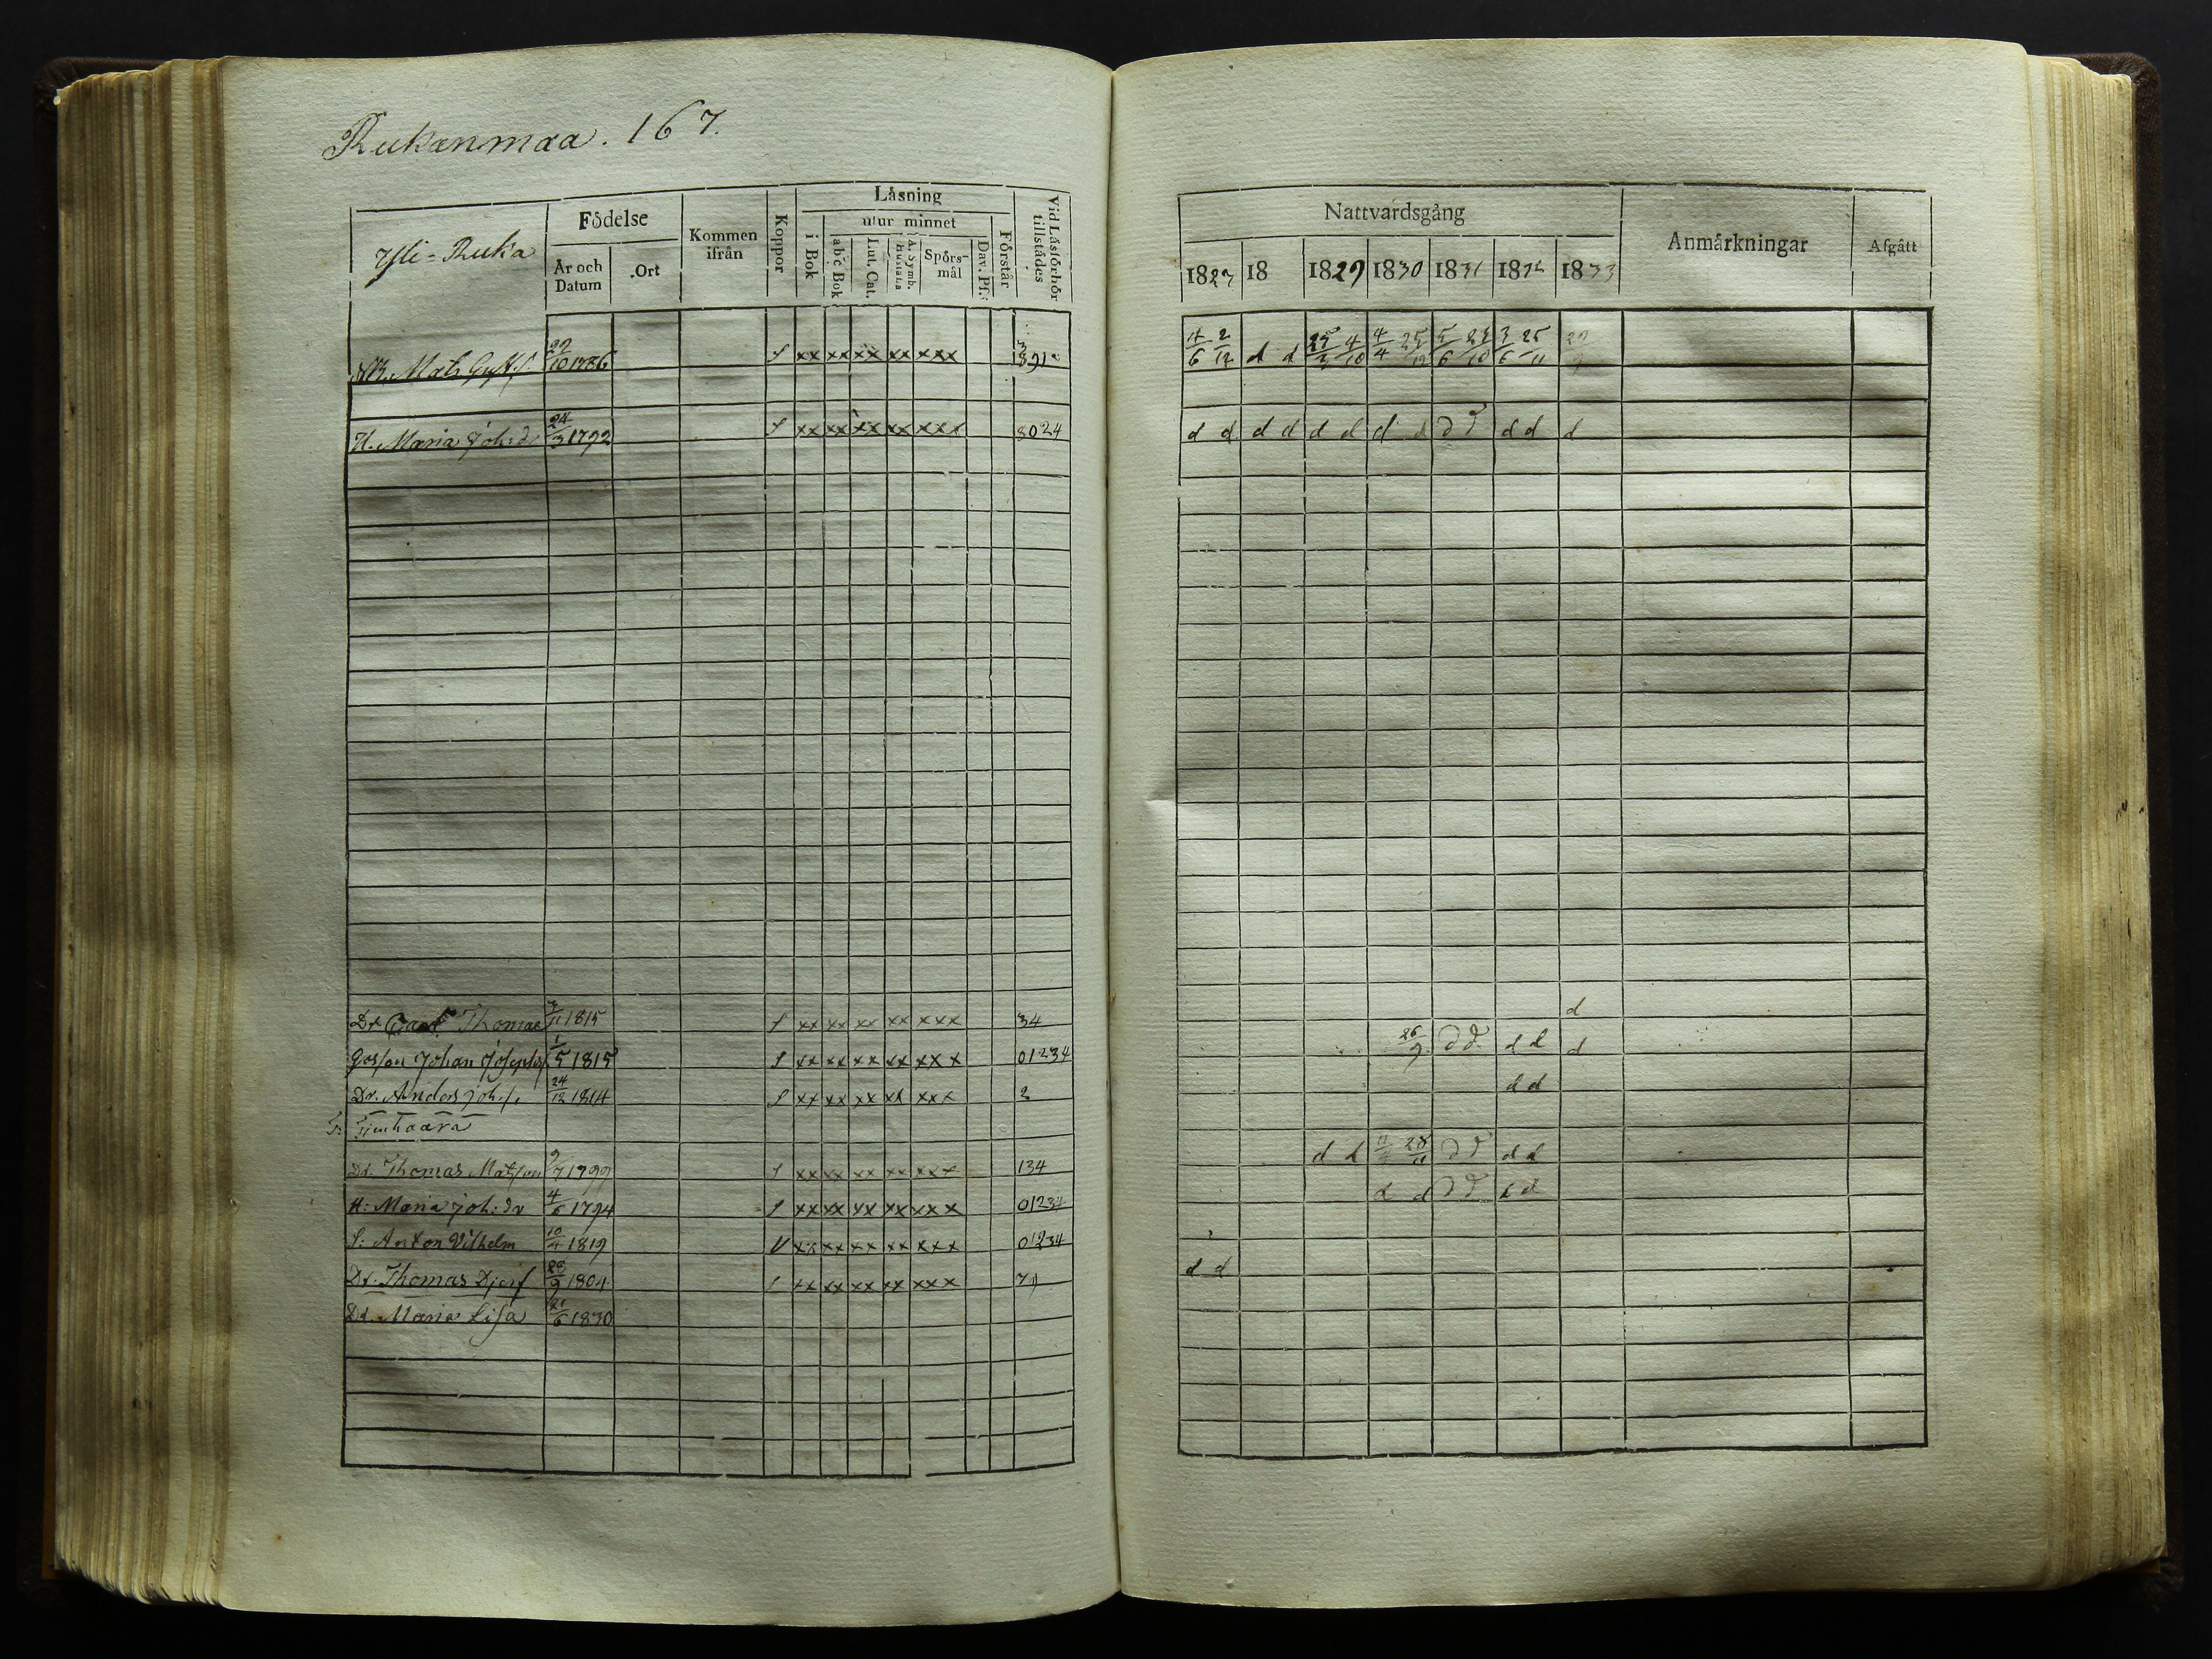 Rukanmaa. 167.
Yli-Ruka
Födelse
År och Datum
Ort
Kommen ifrån
Koppor
Läsning
i Bok
utur minnet
abc Bok
Lut. Cat.
A. Symb. Hustafla
Spörs-mål
Dav. Ps.
Förstår
Vid Läsförhör tillstädes
Mats 22/10 1786 S xx xx xx xx xxx
H. Maria Joh:dr 24/3 1792 S xx xx xx xx xxx 8024
Dr Thomas 3/11 1815 S xx xx xx xx xxx 34
Gosson Johan Josephs 1/5 1815 S xx xx xx xx xxx 01234
Dr. Anders Joh.s. 24/12 1814 S xx xx xx xx xxx 2
Dr. Thomas Matsson 9/7 1799 S xx xx xx xx xxx 134
H: Maria Joh:dr 4/6 1794 S xx xx xx xx xxx 01234
S: Anton Vilhelm 10/4 1819 V xx xx xx xx xxx 01234
Dr. Thomas 28/9 1804 xx xx xx xx xxx
Dr. Maria Lisa 21/6 1830
Nattvardsgång
Anmärkningar
Afgått
1827 18 1829 1830 1831 1832 1833
4/6 2/12 d d 4/10 4/4 5/6 23/10 3/6 25/11
d d d d d d d d d d d d d
d
26/9 d d d d d
d d
d d 28/11 d d d d
d d d d d d
d d